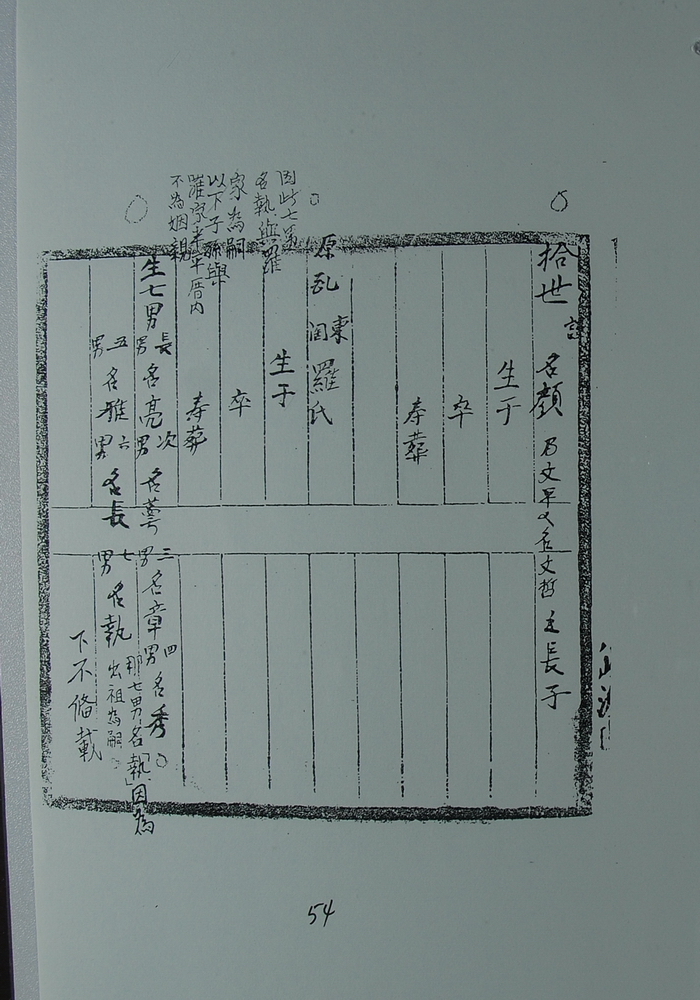 拾世
諱 名顏 乃文早又名文哲之長子
生于
卒
寿葬
原配 東閣 羅氏
生于
卒
寿葬
生七男 長男 名亮 次男 名蕚 三男 名章 四男 名秀
五男 名雅 六男 名長 七男 名執 出祖為嗣
下不俻載
那七男名執因為
因此七男
名執與羅
家為嗣
以下子孫與
羅家
不為姻親
54